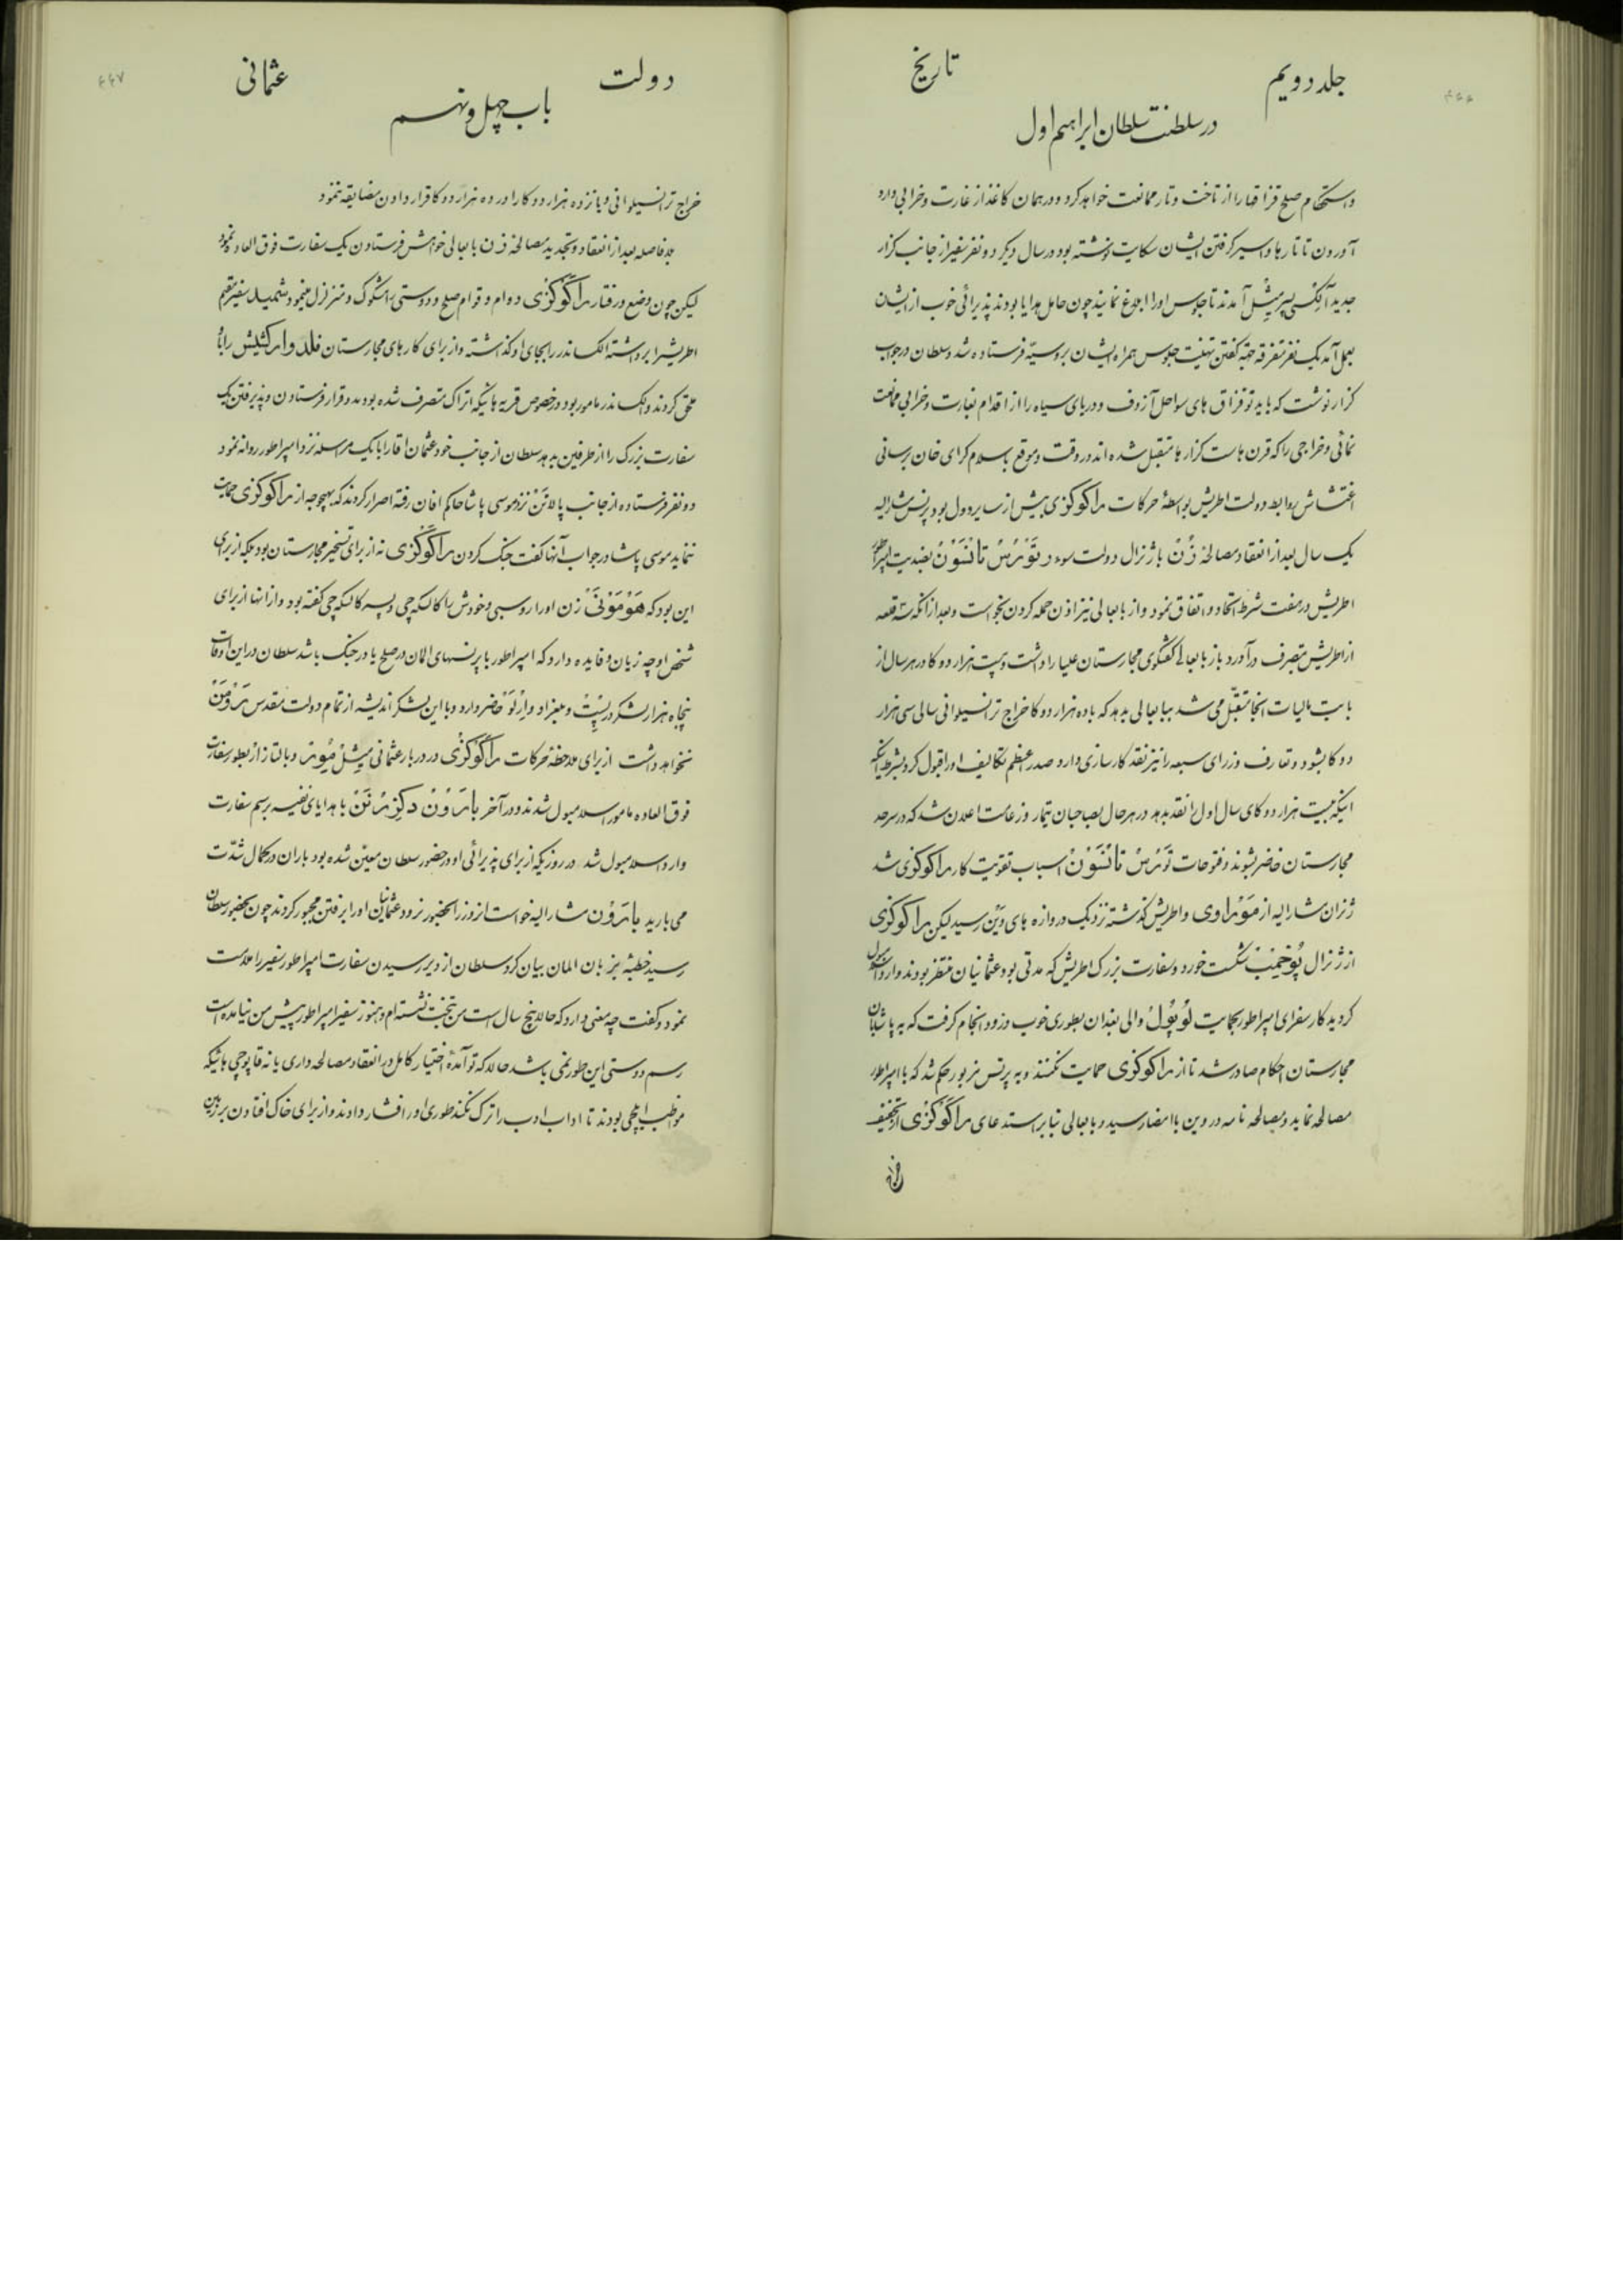 جلد دویم
تاریخ
در سلطنت سلطان ابراهیم اول
واستحکام صلح قزاقها را از تاخت و تاز ممانعت خواهد کرد و در همان کاغذ از غارت و خرابی وارد
آوردن تاتارها و اسیر گرفتن ایشان شکایت نوشته بود در سال دیگر دو نفر سفیر از جانب کزار
جدید آلکسی میشل آمدند تا جلوس او را ابلاغ نمایند چون حامل هدایا بودند پذیرائی خوب از ایشان
بعمل آمد یک نفر متفرقه جهة گفتن تهنیت جلوس همراه ایشان بروسیه فرستاده شد و سلطان در جواب
کزار نوشت که باید تو قزاق های سواحل آزوف و دریای سیاه را از اقدام بغارت و خرابی ممانعت
نمائی و خراجی را که قرن هاست کزارها متقبل شده اند در وقت و موقع باسلام کرای خان برسانی
اغتشاش روابط دولت اطریش بواسطهٔ حرکات راکوکزی بیش از سایر دول بود پرنس مشارالیه
یک سال بعد از انعقاد مصالحهٔ زن با ژنرال دولت سوءد تورس تانسون بضدیت امپراطور
اطریش در هفت شرط اتحاد و اتفاق نمود و از بابعالی نیز اذن حمله کردن بخواست و بعد از آنکه سه قلعه
از اطریش بتصرف درآورد باز بابعالی گفتگوی مجارستان علیا را داشت و بیست هزار دوکا در هر سال از
بابت مالیات آنجا متقبل می شد ببابعالی بدهد که با ده هزار دوکا خراج ترانسیلوانی سالی سی هزار
دوکا بشود و تعارف وزرای سبعه را نیز نقد کارسازی دارد صدر اعظم تکالیف او را قبول کرد بشرط اینکه
اینکه بیست هزار دوکای سال اول را نقد بدهد در هر حال بصاحبان تیمار و زعامت اعلان شد که در سرحد
مجارستان حاضر بشوند و فتوحات تورس تانسون اسباب تقویت کار راکوکزی شد
ژنران مشارالیه از موراوی و اطریش گذشته نزدیک دروازه های وین رسید لیکن راکوکزی
از ژنرال پوخیمب شکست خورد و سفارت بزرک اطریش که مدتی بود عثمانیان منتظر بودند وارد اسلامبول
کردید کار سفرای امپراطور بحمایت لوپول والی بغدان بطوری خوب و زود انجام گرفت که به پاشایان
مجارستان احکام صادر شد تا از راکوکزی حمایت نکنند و به پرنس مزبور حکم شد که با امپراطور
مصالحه نماید و مصالحه نامه در وین باامضا رسید و بابعالی بنا بر استدعای راکوکزی از تخفیف
دولت
عثمانی
۴۴۷
باب چهل و نهم
خراج ترانسیلوانی و پانزده هزار دوکا را در ده هزار دوکا قرار دادن مضایقه ننمود
بلافاصله بعد از انعقاد و تجدید مصالحهٔ زن بابعالی خواهش فرستادن یک سفارت فوق العاده نمود
لیکن چون وضع و رفتار راکوکزی دوام و قوام صلح و دوستی را مشکوک و متزلزل مینمود شمید سفیر مقیم
اطریش را برداشته الکساندر را بجای او گذاشته و از برای کارهای مجارستان را باو
ملحق کردند و الکساندر مامور بود در خصوص قریه هائیکه اتراک متصرف شده بودند و قرار فرستادن و پذیرفتن یک
سفارت بزرک را از طرفین بدهد سلطان از جانب خود عثمان اقا را با یک مراسله نزد امپراطور روانه نمود
دو نفر فرستاده از جانب پالاتن نزد موسی پاشا حاکم افان رفته اصرار کردند که بهیچوجه از راکوکزی حمایت
ننماید موسی پاشا در جواب آنها گفت جنک کردن راکوکزی نه از برای تسخیر مجارستان بود بلکه از برای
این بود که هومونی زن او را روسبی و خودش را کالسکه چی و پسر کالسکه چی گفته بود و از انها از برای
شخص او چه زیان و فایده دارد که امپراطور با پرنسهای المان در صلح یا در جنک باشد سلطان در این اوقات
پنجاه هزار لشکر در پست و بلغراد و وارنو حاضر دارد و با این لشکر اندیشه از تمام دولت مقدس رومن
نخواهد داشت از برای ملاحظهٔ حرکات راکوکزی در دربار عثمانی میشل میور و بالتازار بطور سفارت
فوق العاده مامور اسلامبول شدند و در آخر بارون دکزرنن با هدایای نفیسه برسم سفارت
وارد اسلامبول شد در روزیکه از برای پذیرائی او در حضور سلطان معین شده بود باران در کمال شدت
می بارید بارون مشارالیه خواست از وزرا بحضور نرود عثمانیان او را بر فتن مجبور کردند چون بحضور سلطان
رسید خطبهٔ بزبان المان بیان کرد سلطان از دیر رسیدن سفارت امپراطور سفیر را ملامت
نمود و گفت چه معنی دارد که حالا پنج سال است من بتخت نشسته ام و هنوز سفیر امپراطور پیش من نیامده است
رسم دوستی این طور نمی باشد حالا که تو آمدهٔ اختیار کامل در انعقاد مصالحه داری یا نه قاپوچی هائیکه
مواظب ایلچی بودند تا اداب ادب را ترک نکند طوری او را فشار دادند و از برای خاک افتادن بر زمین